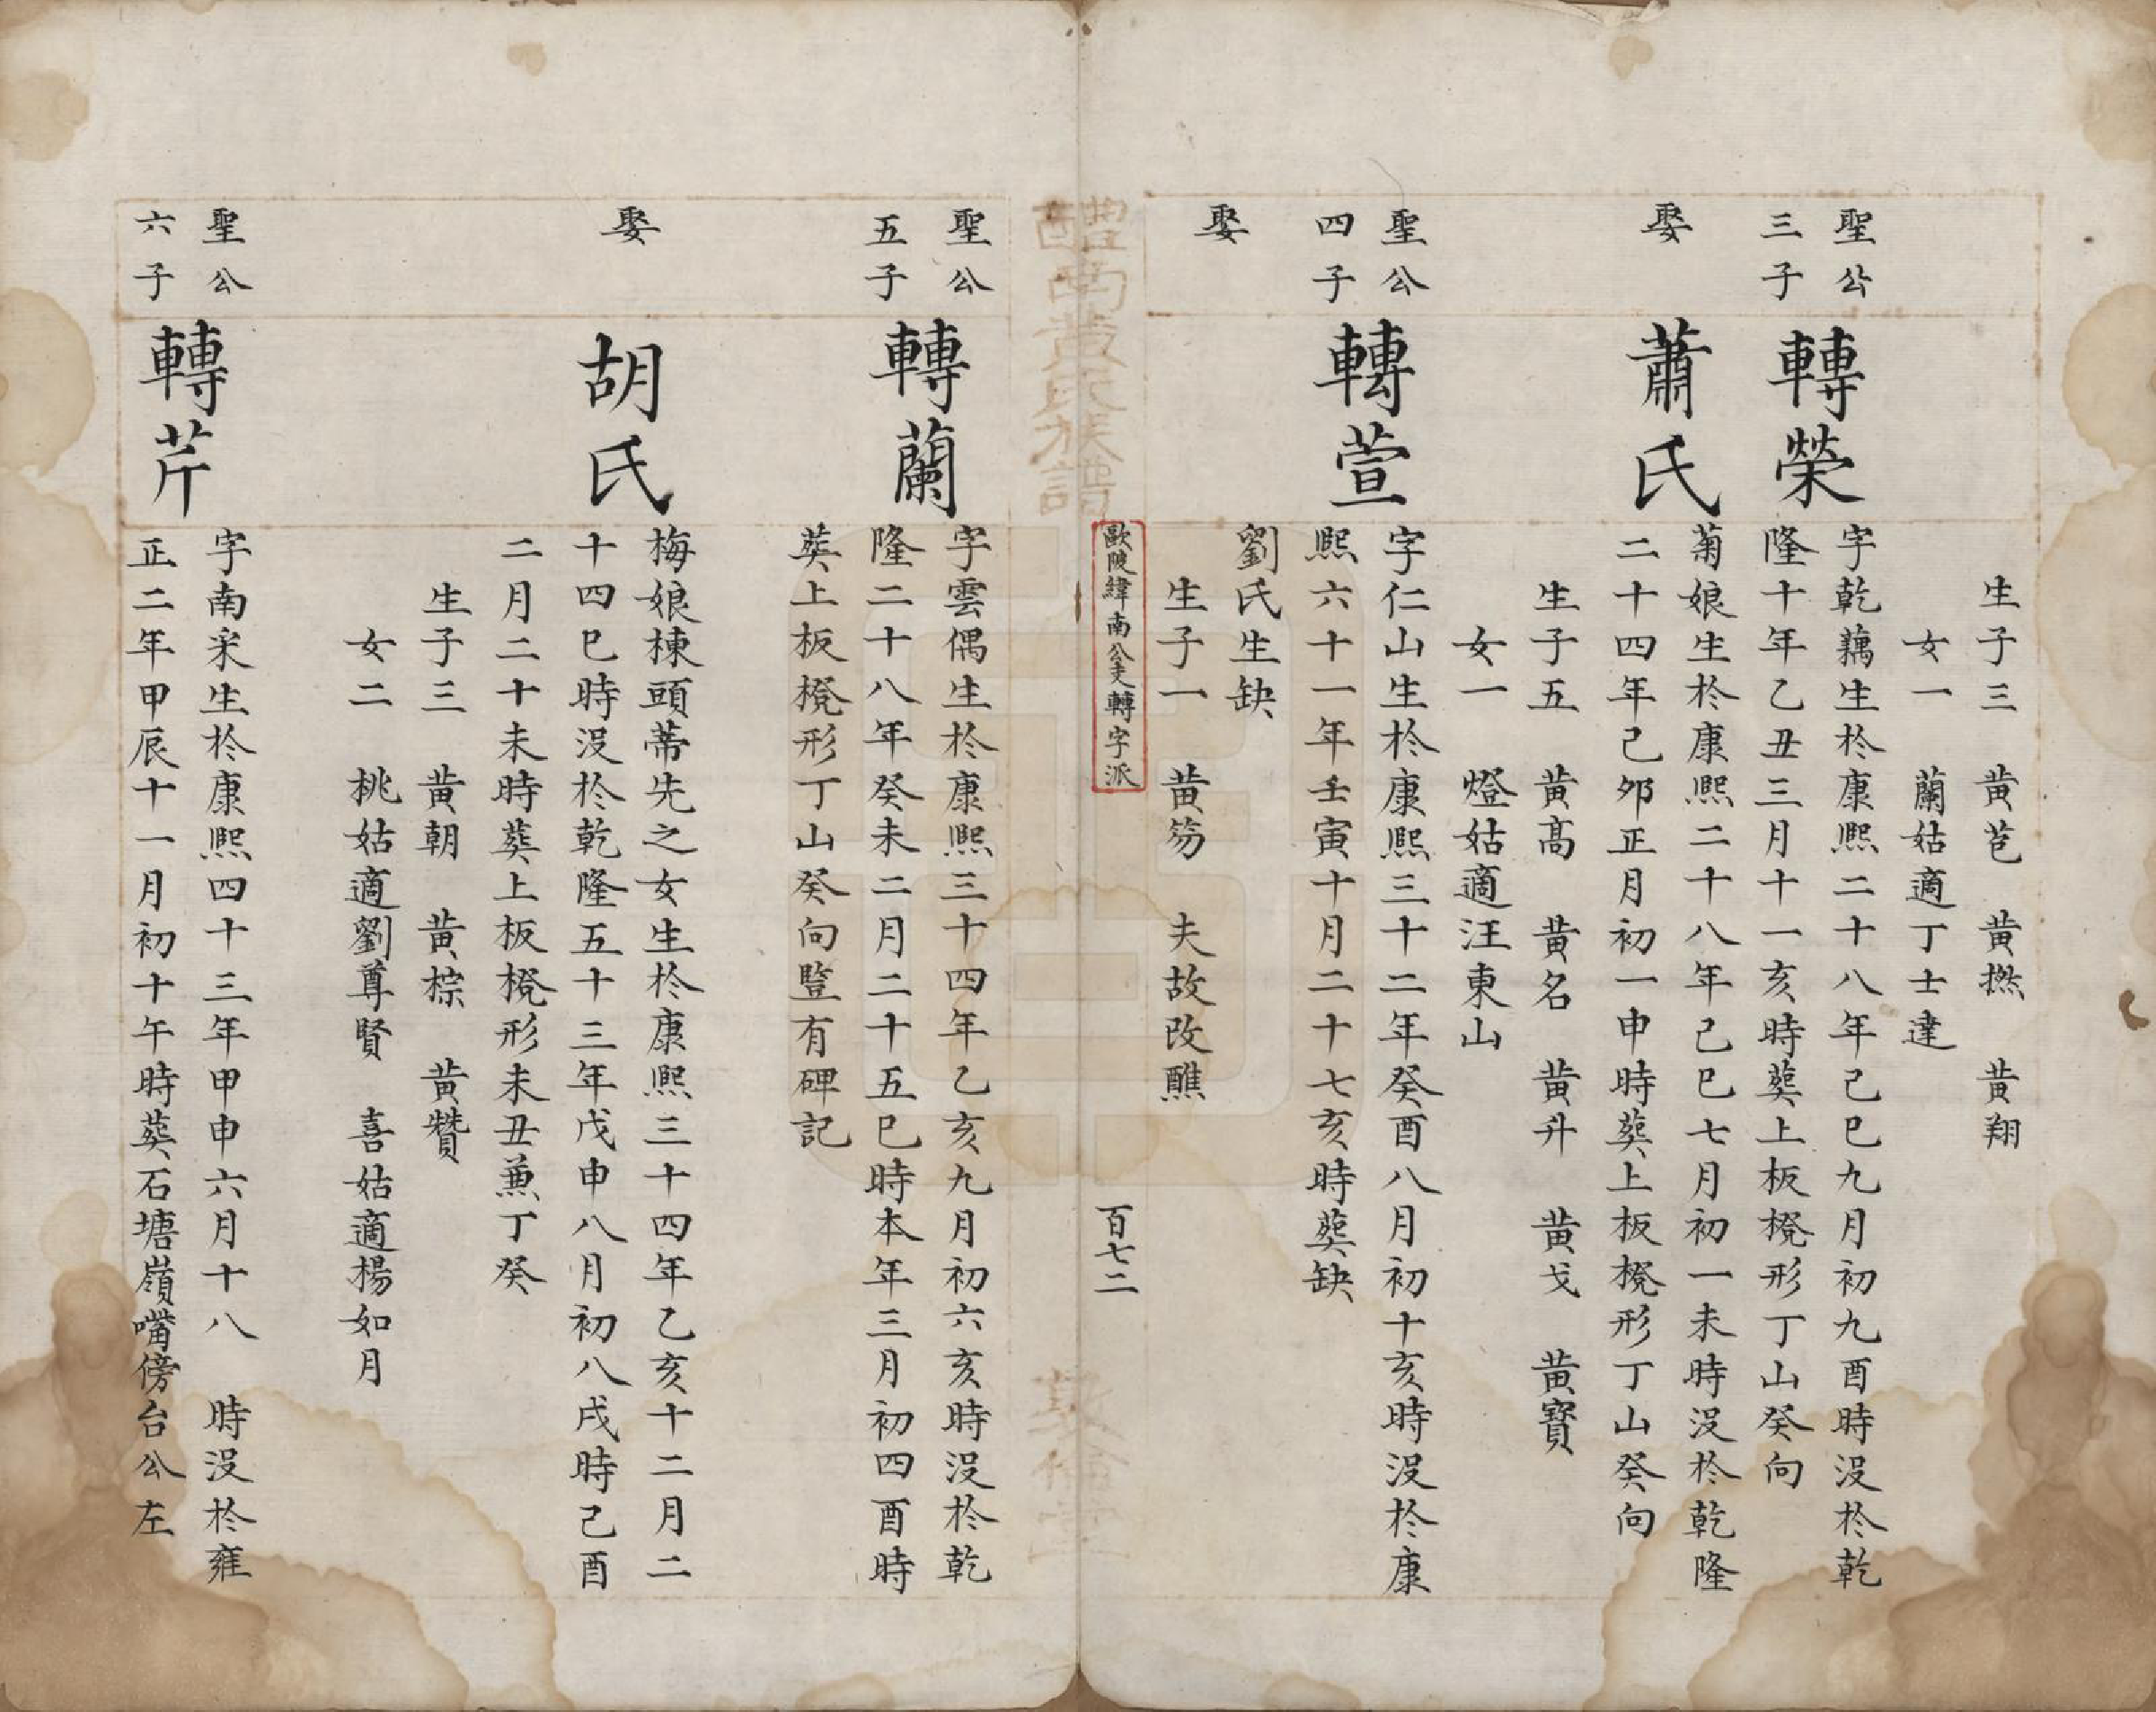 生子三　黃芑　黃撚　黃翔
女一　蘭姑適丁士達
聖公三子
轉榮
字乾藕生於康熙二十八年己巳九月初九酉時沒於乾
隆十年乙丑三月十一亥時葬上板櫈形丁山癸向
娶
蕭氏
菊娘生於康熙二十八年己巳七月初一未時沒於乾隆
二十四年己夘正月初一申時葬上板櫈形丁山癸向
生子五　黃高　黃名　黃升　黃戈　黃寶
女一　燈姑適汪東山
聖公四子
轉萱
字仁山生於康熙三十二年癸酉八月初十亥時沒於康
熙六十一年壬寅十月二十七亥時葬缺
娶
劉氏生缺
生子一　黃笏　夫故改醮
歐陂緯南公支轉字派
百七二
醴南黃氏族譜
聖公五子
轉蘭
字雲偶生於康熙三十四年乙亥九月初六亥時沒於乾
隆二十八年癸未二月二十五巳時本年三月初四酉時
葬上板櫈形丁山癸向豎有碑記
娶
胡氏
梅娘棟頭蒂先之女生於康熙三十四年乙亥十二月二
十四巳時沒於乾隆五十三年戊申八月初八戌時己酉
二月二十未時葬上板櫈形未丑兼丁癸
生子三　黃朝　黃棕　黃贊
女二　桃姑適劉尊賢　喜姑適楊如月
聖公六子
轉芹
字南采生於康熙四十三年甲申六月十八　時沒於雍
正二年甲辰十一月初十午時葬石塘嶺嘴傍台公左